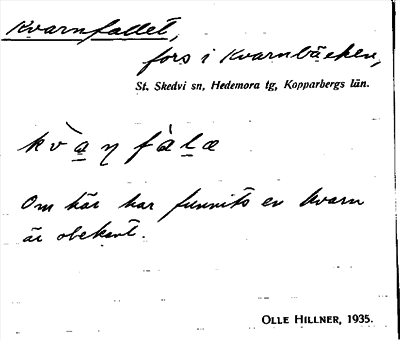 Kvarnfallet,
fors i Kvarnbäcken,
St. Skedvi sn, Hedemora tg, Kopparbergs län.
kv̀a̲ɳfàl̲æ
Om här har funnits en kvarn
är obekant.
OLLE HILLNER, 1935.